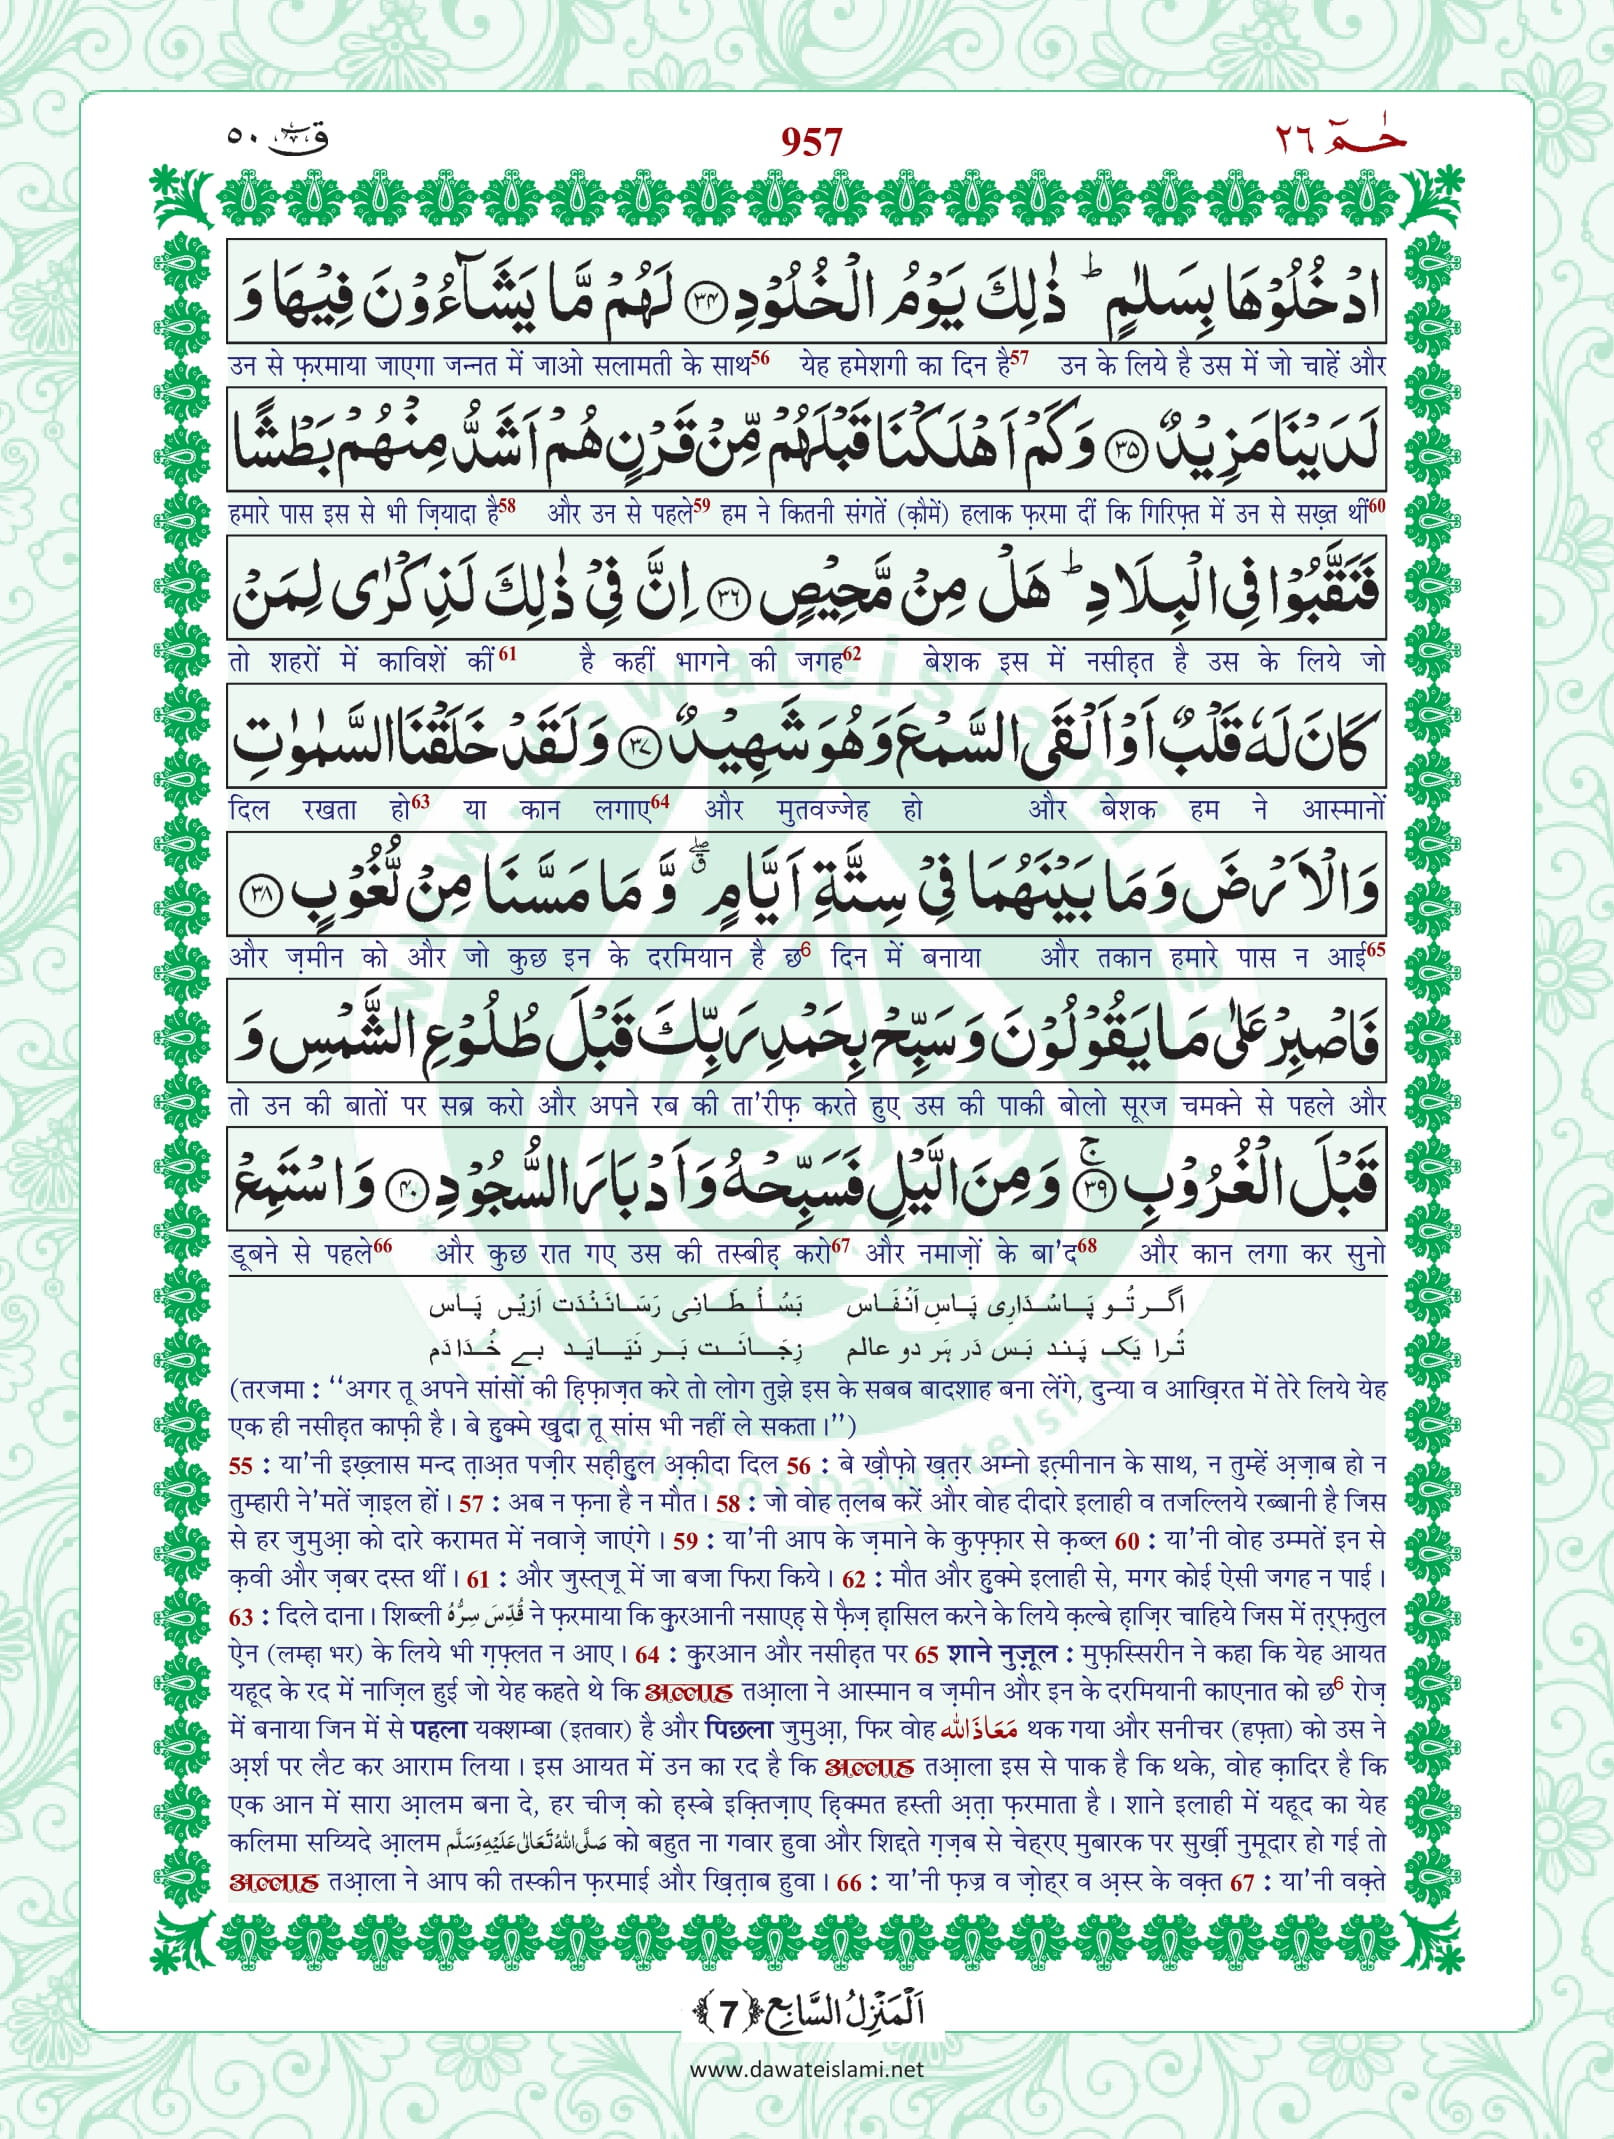 قٓ ٥٠
957
حٰمٓ ٢٦
ادْخُلُوْهَا بِسَلٰمٍ ؕ ذٰلِكَ یَوْمُ الْخُلُوْدِ ﴿۳۴﴾ لَهُمْ مَّا یَشَآءُوْنَ فِیْهَا وَ
उन से फ़रमाया जाएगा जन्नत में जाओ सलामती के साथ56 येह हमेशगी का दिन है57 उन के लिये है उस में जो चाहें और
لَدَیْنَا مَزِیْدٌ ﴿۳۵﴾ وَكَمْ اَهْلَكْنَا قَبْلَهُمْ مِّنْ قَرْنٍ هُمْ اَشَدُّ مِنْهُمْ بَطْشًا
हमारे पास इस से भी ज़ियादा है58 और उन से पहले59 हम ने कितनी संगतें (क़ौमें) हलाक फ़रमा दीं कि गिरिफ़्त में उन से सख़्त थीं60
فَنَقَّبُوْا فِی الْبِلَادِ ؕ هَلْ مِنْ مَّحِیْصٍ ﴿۳۶﴾ اِنَّ فِیْ ذٰلِكَ لَذِكْرٰی لِمَنْ
तो शहरों में काविशें कीं61 है कहीं भागने की जगह62 बेशक इस में नसीहत है उस के लिये जो
كَانَ لَهٗ قَلْبٌ اَوْ اَلْقَی السَّمْعَ وَهُوَ شَهِیْدٌ ﴿۳۷﴾ وَلَقَدْ خَلَقْنَا السَّمٰوٰتِ
दिल रखता हो63 या कान लगाए64 और मुतवज्जेह हो और बेशक हम ने आस्मानों
وَالْاَرْضَ وَمَا بَیْنَهُمَا فِیْ سِتَّةِ اَیَّامٍ ۖۗ وَّمَا مَسَّنَا مِنْ لُّغُوْبٍ ﴿۳۸﴾
और ज़मीन को और जो कुछ इन के दरमियान है छ6 दिन में बनाया और तकान हमारे पास न आई65
فَاصْبِرْ عَلٰی مَا یَقُوْلُوْنَ وَسَبِّحْ بِحَمْدِ رَبِّكَ قَبْلَ طُلُوْعِ الشَّمْسِ وَ
तो उन की बातों पर सब्र करो और अपने रब की ता'रीफ़ करते हुए उस की पाकी बोलो सूरज चमक्ने से पहले और
قَبْلَ الْغُرُوْبِ ﴿۳۹﴾ۚ وَمِنَ الَّیْلِ فَسَبِّحْهُ وَاَدْبَارَ السُّجُوْدِ ﴿۴۰﴾ وَاسْتَمِعْ
डूबने से पहले66 और कुछ रात गए उस की तस्बीह़ करो67 और नमाज़ों के बा'द68 और कान लगा कर सुनो
اَگر تُو پَاسْدَارِی پَاسِ اَنْفَاس بَسُلْطَانِی رَسَانَنْدَت اَزِیْں پَاس
تُرا یَک پَند بَس دَر ہَر دو عالم زِجَانَت بَر نَیَایَد بے خُدَا دَم
(तरजमा : ‘‘अगर तू अपने सांसों की ह़िफ़ाज़त करे तो लोग तुझे इस के सबब बादशाह बना लेंगे, दुन्या व आख़िरत में तेरे लिये येह
एक ही नसीह़त काफ़ी है। बे हुक्मे ख़ुदा तू सांस भी नहीं ले सकता।’’)
55 : या'नी इख़्लास मन्द त़ाअ़त पज़ीर सह़ीहुल अ़क़ीदा दिल 56 : बे ख़ौफ़ो ख़त़र अम्नो इत़्मीनान के साथ, न तुम्हें अ़ज़ाब हो न
तुम्हारी ने'मतें ज़ाइल हों। 57 : अब न फ़ना है न मौत। 58 : जो वोह त़लब करें और वोह दीदारे इलाही व तजल्लिये रब्बानी है जिस
से हर जुमुआ़ को दारे करामत में नवाज़े जाएंगे। 59 : या'नी आप के ज़माने के कुफ़्फ़ार से क़ब्ल 60 : या'नी वोह उम्मतें इन से
क़वी और ज़बर दस्त थीं। 61 : और जुस्त्जू में जा बजा फिरा किये। 62 : मौत और हुक्मे इलाही से, मगर कोई ऐसी जगह न पाई।
63 : दिले दाना। शिब्ली قُدِّسَ سِرُّہٗ ने फ़रमाया कि क़ुरआनी नसाएह़ से फ़ैज़ ह़ासिल करने के लिये क़ल्बे ह़ाज़िर चाहिये जिस में त़र्फ़तुल
ऐन (लम्ह़ा भर) के लिये भी ग़फ़्लत न आए। 64 : क़ुरआन और नसीह़त पर 65 शाने नुज़ूल : मुफ़स्सिरीन ने कहा कि येह आयत
यहूद के रद में नाज़िल हुई जो येह कहते थे कि अल्लाह तआ़ला ने आस्मान व ज़मीन और इन के दरमियानी काएनात को छ6 रोज़
में बनाया जिन में से पहला यक्शम्बा (इतवार) है और पिछला जुमुआ़, फिर वोह مَعَاذَاللّٰہ थक गया और सनीचर (हफ़्ता) को उस ने
अ़र्श पर लैट कर आराम लिया। इस आयत में उन का रद है कि अल्लाह तआ़ला इस से पाक है कि थके, वोह क़ादिर है कि
एक आन में सारा आ़लम बना दे, हर चीज़ को ह़स्बे इक़्तिज़ाए ह़िक्मत हस्ती अ़त़ा फ़रमाता है। शाने इलाही में यहूद का येह
कलिमा सय्यिदे आ़लम صَلَّی اللّٰہُ تَعَالٰی عَلَیْہِ وَسَلَّم को बहुत ना गवार हुवा और शिद्दते ग़ज़ब से चेहरए मुबारक पर सुर्ख़ी नुमूदार हो गई तो
अल्लाह तआ़ला ने आप की तस्कीन फ़रमाई और ख़ित़ाब हुवा। 66 : या'नी फ़ज्र व ज़ोहर व अ़स्र के वक़्त 67 : या'नी वक़्ते
اَلْمَنْزِلُ السَّابِع ﴿7﴾
www.dawateislami.net